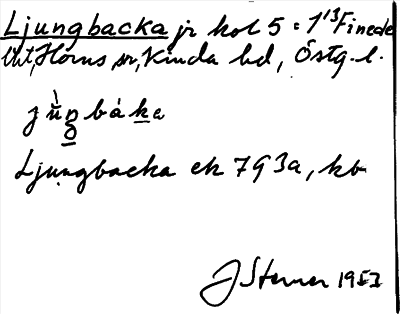 Ljungbacka jr kol 5 = 1/13 Finede
Utt, Horns sr, Kinda hd, Östg. l.
jùŋbáka
Ljungbacka ek 7 G 3a, kb
J Sterner